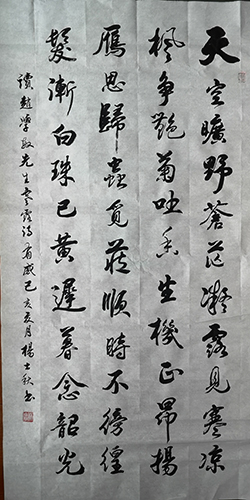 天空曠野蒼茫凝露見寒涼
楓争艷菊吐香生機正昂揚
鴈思歸蟲覓藏順時不徬徨
鬓漸白珠已黃遲暮念韶光
讀趙學敏先生寒露詩有感己亥亥月楊士秋書